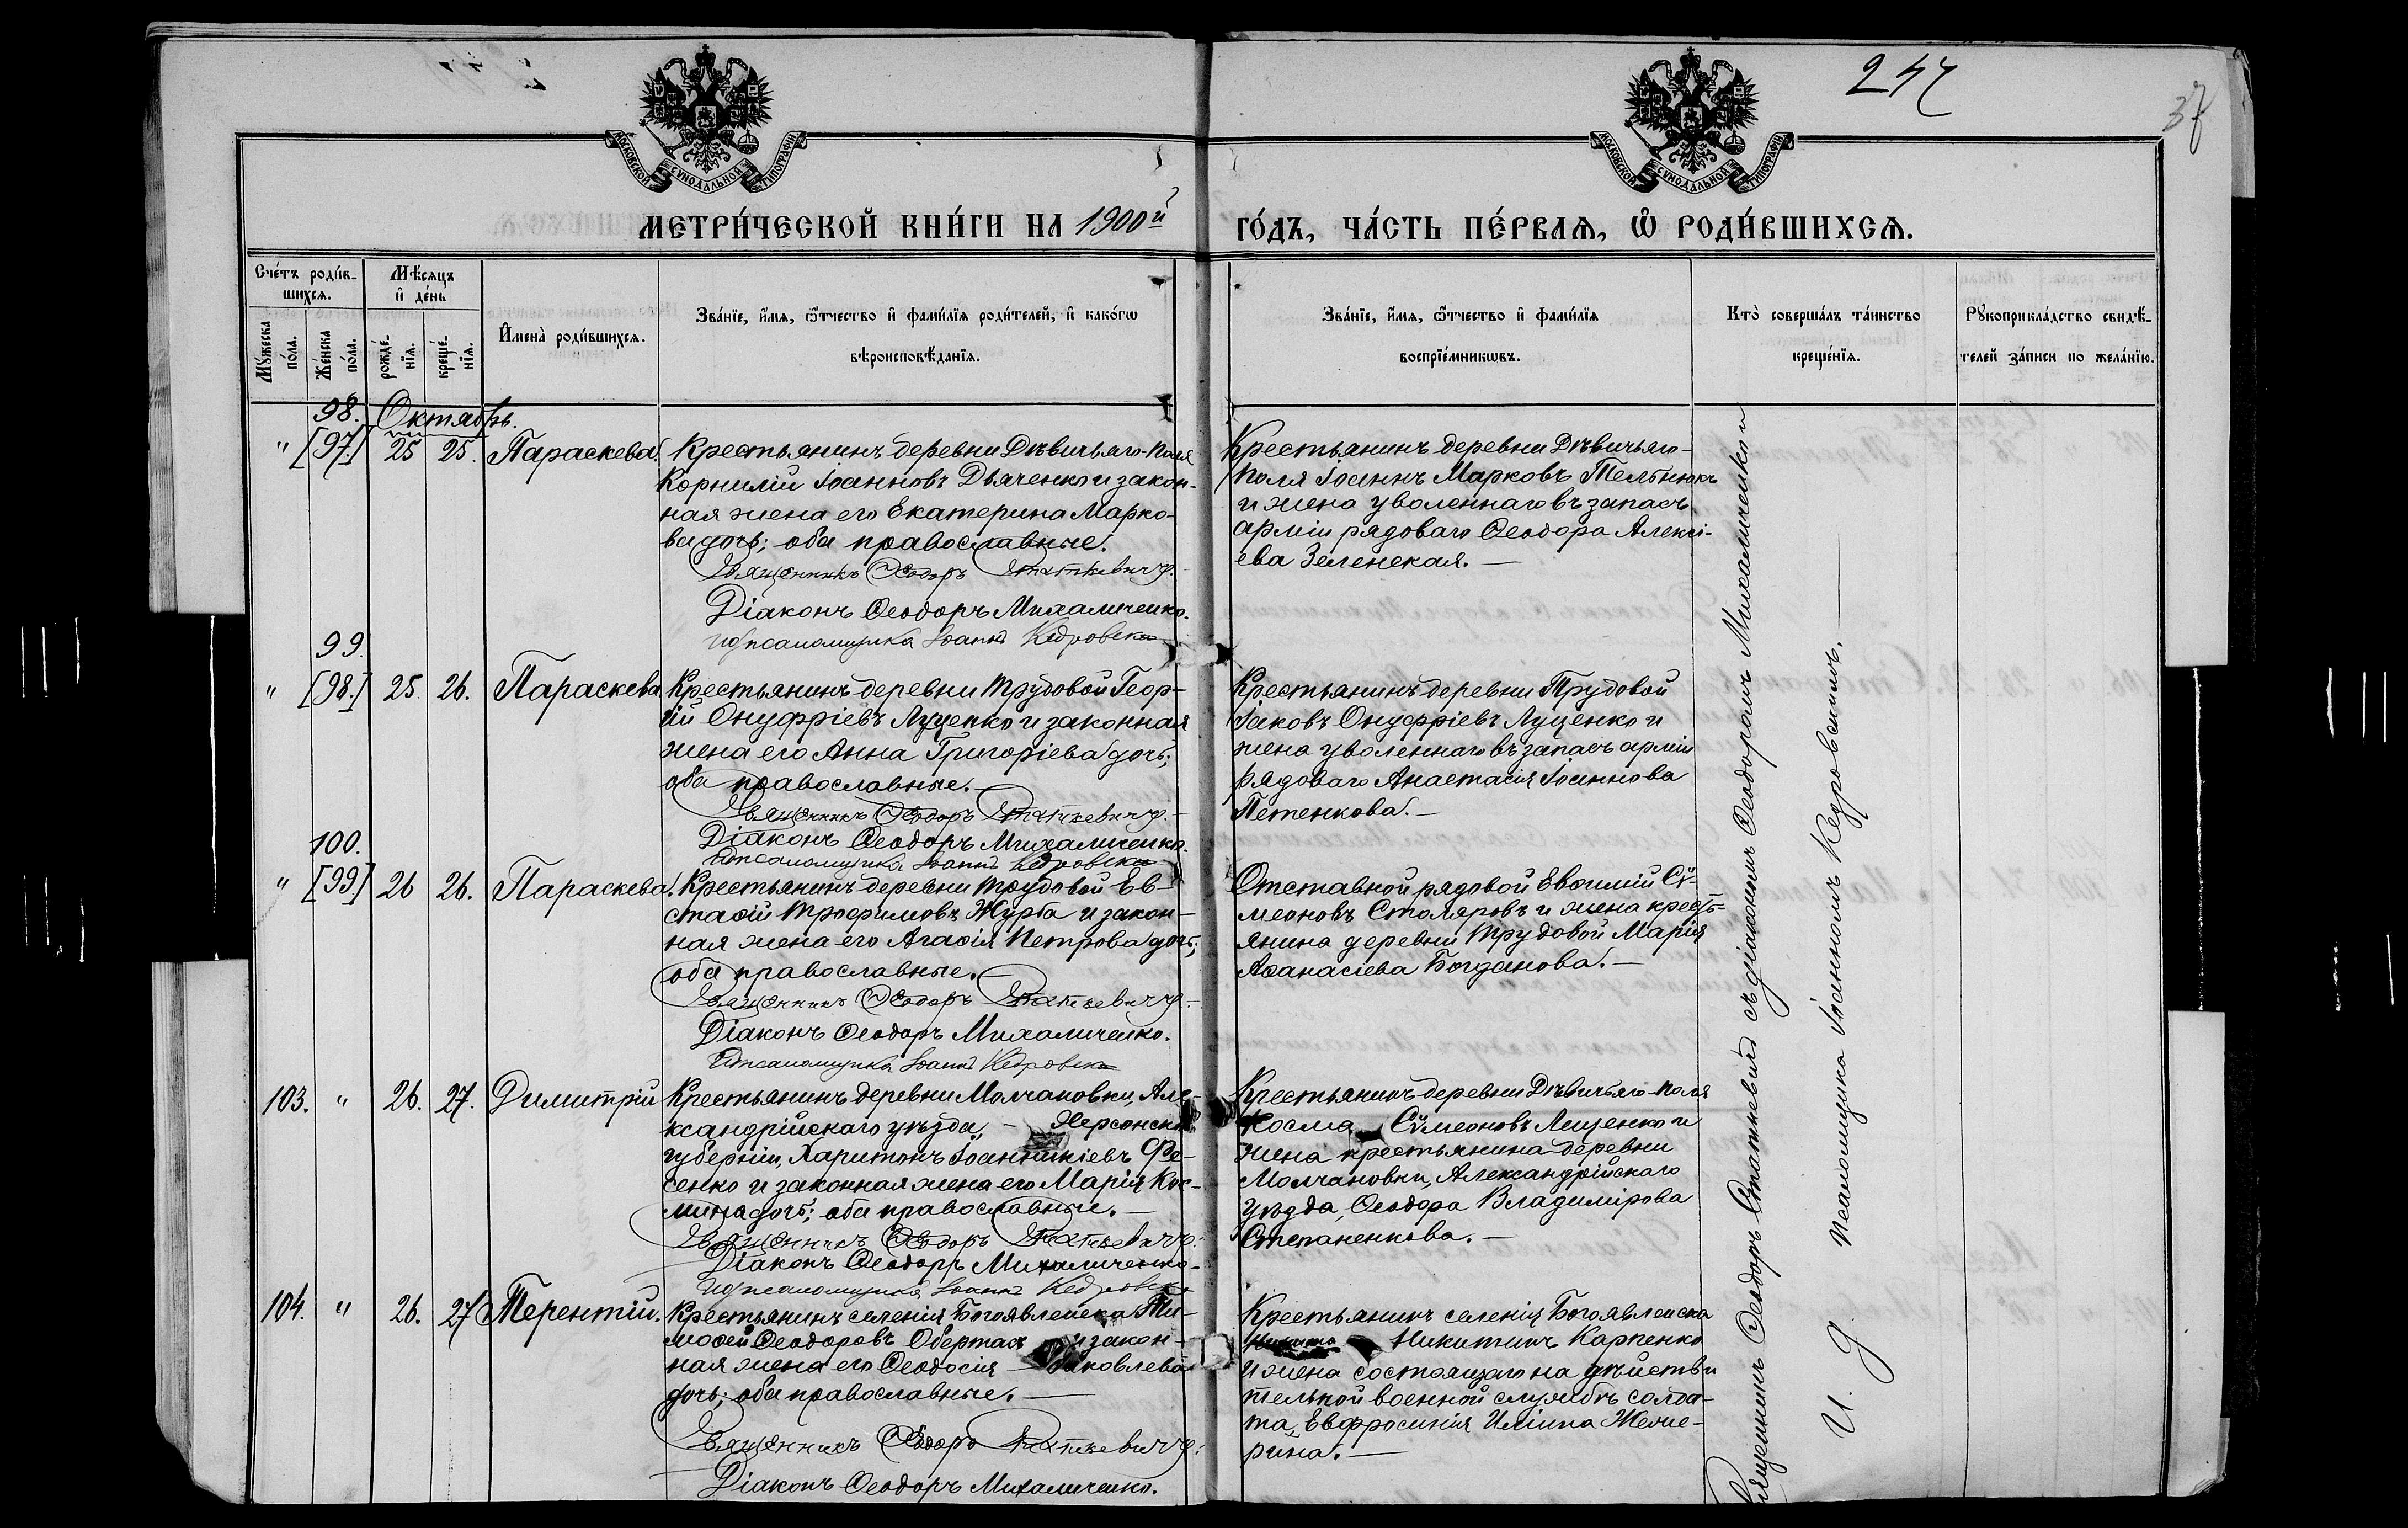 247
37
МОСКОВСКОЙ СѴНОДАЛЬНОЙ ТИПОГРАФІИ
МОСКОВСКОЙ СѴНОДАЛЬНОЙ ТИПОГРАФІИ
МЕТРИ́ЧЕСКОЙ КНИ́ГИ НА 1900й ГО́ДЪ, ЧА́СТЬ ПЕ́РВАѦ, Ѡ҆ РОДИ́ВШИХСѦ.
Сче́тъ роди́в-
шихсѧ.
Мꙋ́жеска по́ла.
Же́нска по́ла.
Мѣ́сѧцъ
и҆ де́нь
рожде́-
нїѧ.
креще́-
нїѧ.
И҆мена̀ роди́вшихсѧ.
Зва́нїе, и҆́мѧ, ѻ҆́тчество и҆ фами́лїѧ роди́телей, и҆ како́гѡ
вѣроисповѣ́данїѧ.
Зва́нїе, и҆́мѧ, ѻ҆́тчество и҆ фами́лїѧ
воспрїе́мникѡвъ.
Кто̀ соверша́лъ та́инство
креще́нїѧ.
Рꙋкоприкла́дство свидѣ́-
телей за́писи по жела́нїю.
98. Октябрь.
" [97.] 25 25. Параскева.
Крестьянинъ деревни Дѣвичьяго-поля
Корнилій Іоанновъ Дьяченко и закон-
ная жена его Екатерина Марко-
ва дочь; оба православные.
Священникъ Ѳеодоръ Статкевичъ.
Діаконъ Ѳеодоръ Михаличенко.
И д псаломщика Іоаннъ Кедровскій
Крестьянинъ деревни Дѣвичьяго-
поля Іоаннъ Марковъ Тельнюкъ
и жена уволеннаго въ запасъ
арміи рядоваго Ѳеодора Алексі-
ева Зеленская.
99.
" [98.] 25. 26. Параскева.
Крестьянинъ деревни Трудовой Геор-
гій Онуфріевъ Луценко и законная
жена его Анна Григоріева дочь;
оба православные.
Священникъ Ѳеодоръ Статкевичъ.
Діаконъ Ѳеодоръ Михаличенко.
И д псаломщика Іоаннъ Кедровскій
Крестьянинъ деревни Трудовой
Іаковъ Онуфріевъ Луценко и
жена уволеннаго въ запасъ арміи
рядоваго Анастасія Іоаннова
Петенкова.
100.
" [99.] 26 26. Параскева.
Крестьянинъ деревни Трудовой Ев-
стаѳій Трофимовъ Журба и закон-
ная жена его Агаѳія Петрова дочь;
оба православные.
Священникъ Ѳеодоръ Статкевичъ.
Діаконъ Ѳеодоръ Михаличенко.
И д псаломщика Іоаннъ Кедровскій
Отставной рядовой Евѳимій Сѵ-
меоновъ Столяровъ и жена кресть-
янина деревни Трудовой Марія
Аѳанасіева Богданова.
103. " 26. 27. Димитрій
Крестьянинъ деревни Молчановки, Але-
ксандрійскаго уѣзда, Херсонской
губерніи, Харитонъ Іоанникіевъ Фе-
сенко и законная жена его Марія Кос-
мина дочь; оба православные.
Священникъ Ѳеодоръ Статкевичъ.
Діаконъ Ѳеодоръ Михаличенко.
И д псаломщика Іоаннъ Кедровскій
Крестьянинъ деревни Дѣвичьяго-поля
Косма Сѵмеоновъ Лещенко и
жена крестьянина деревни
Молчановки, Александрійскаго
уѣзда, Ѳеодора Владимірова
Степаненкова.
104. " 26. 27 Терентій.
Крестьянинъ селенія Богоявленска Ти-
моѳей Ѳеодоровъ Обертас и закон-
ная жена его Ѳеодосія Іаковлева
дочь; оба православные.
Священникъ Ѳеодоръ Статкевичъ.
Діаконъ Ѳеодоръ Михаличенко.
Крестьянинъ селенія Богоявленска
Никитинъ Карпенко
и жена состоящаго на дѣйстви
тельной военной службѣ солда-
та, Евфросинія Иліина
Священникъ Ѳеодоръ Статкевичъ съ діакономъ Ѳеодоромъ Михаличенком
И. д. псаломщика Іоанномъ Кедровскимъ.